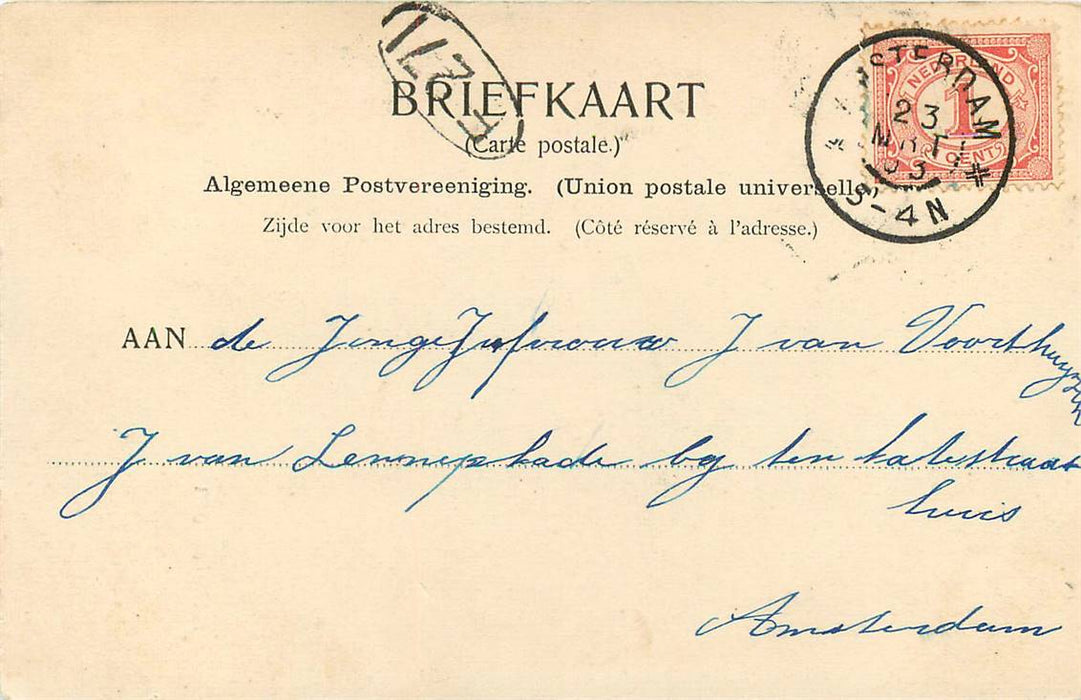 BRIEFKAART
(Carte postale.)
Algemeene Postvereeniging. (Union postale universelle)
Zijde voor het adres bestemd. (Côté réservé à l'adresse.)
NEDERLAND
1
CENT
AMSTERDAM
23
MRT
03
3-4N
AAN de Jonge Jufvrouw J van Voorthuyzen
J van Lennepkade by ten Katestraat
huis
Amsterdam